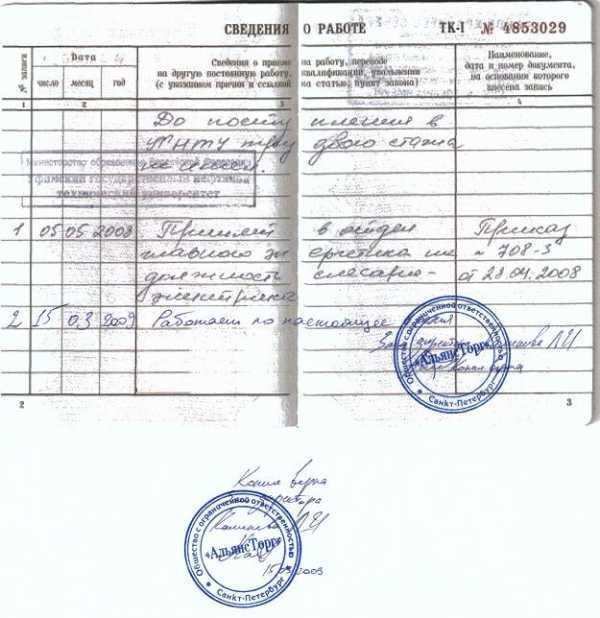 СВЕДЕНИЯ О РАБОТЕ ТК-I № 4853029
№ записи
Дата
число месяц год
Сведения о приеме на работу, переводе
на другую постоянную работу, квалификации, увольнении
(с указанием причин и ссылкой на статью, пункт закона)
Наименование,
дата и номер документа,
на основании которого
внесена запись
1 2 3 4
До поступления в
УГНТУ трудового стажа
не имеет.
Министерство образования Российской Федерации
Уфимский государственный нефтяной
технический университет
1 05 05 2008 Принят в отдел Приказ
главного энергетика на № 708-з
должность слесаря- от 28.04.2008
электрика
2 15 03 2009 Работает по настоящее
Копия верна
Общество с ограниченной ответственностью
«АльянсТорг»
Санкт-Петербург
2 3
Копия верна
Общество с ограниченной ответственностью
«АльянсТорг»
Санкт-Петербург